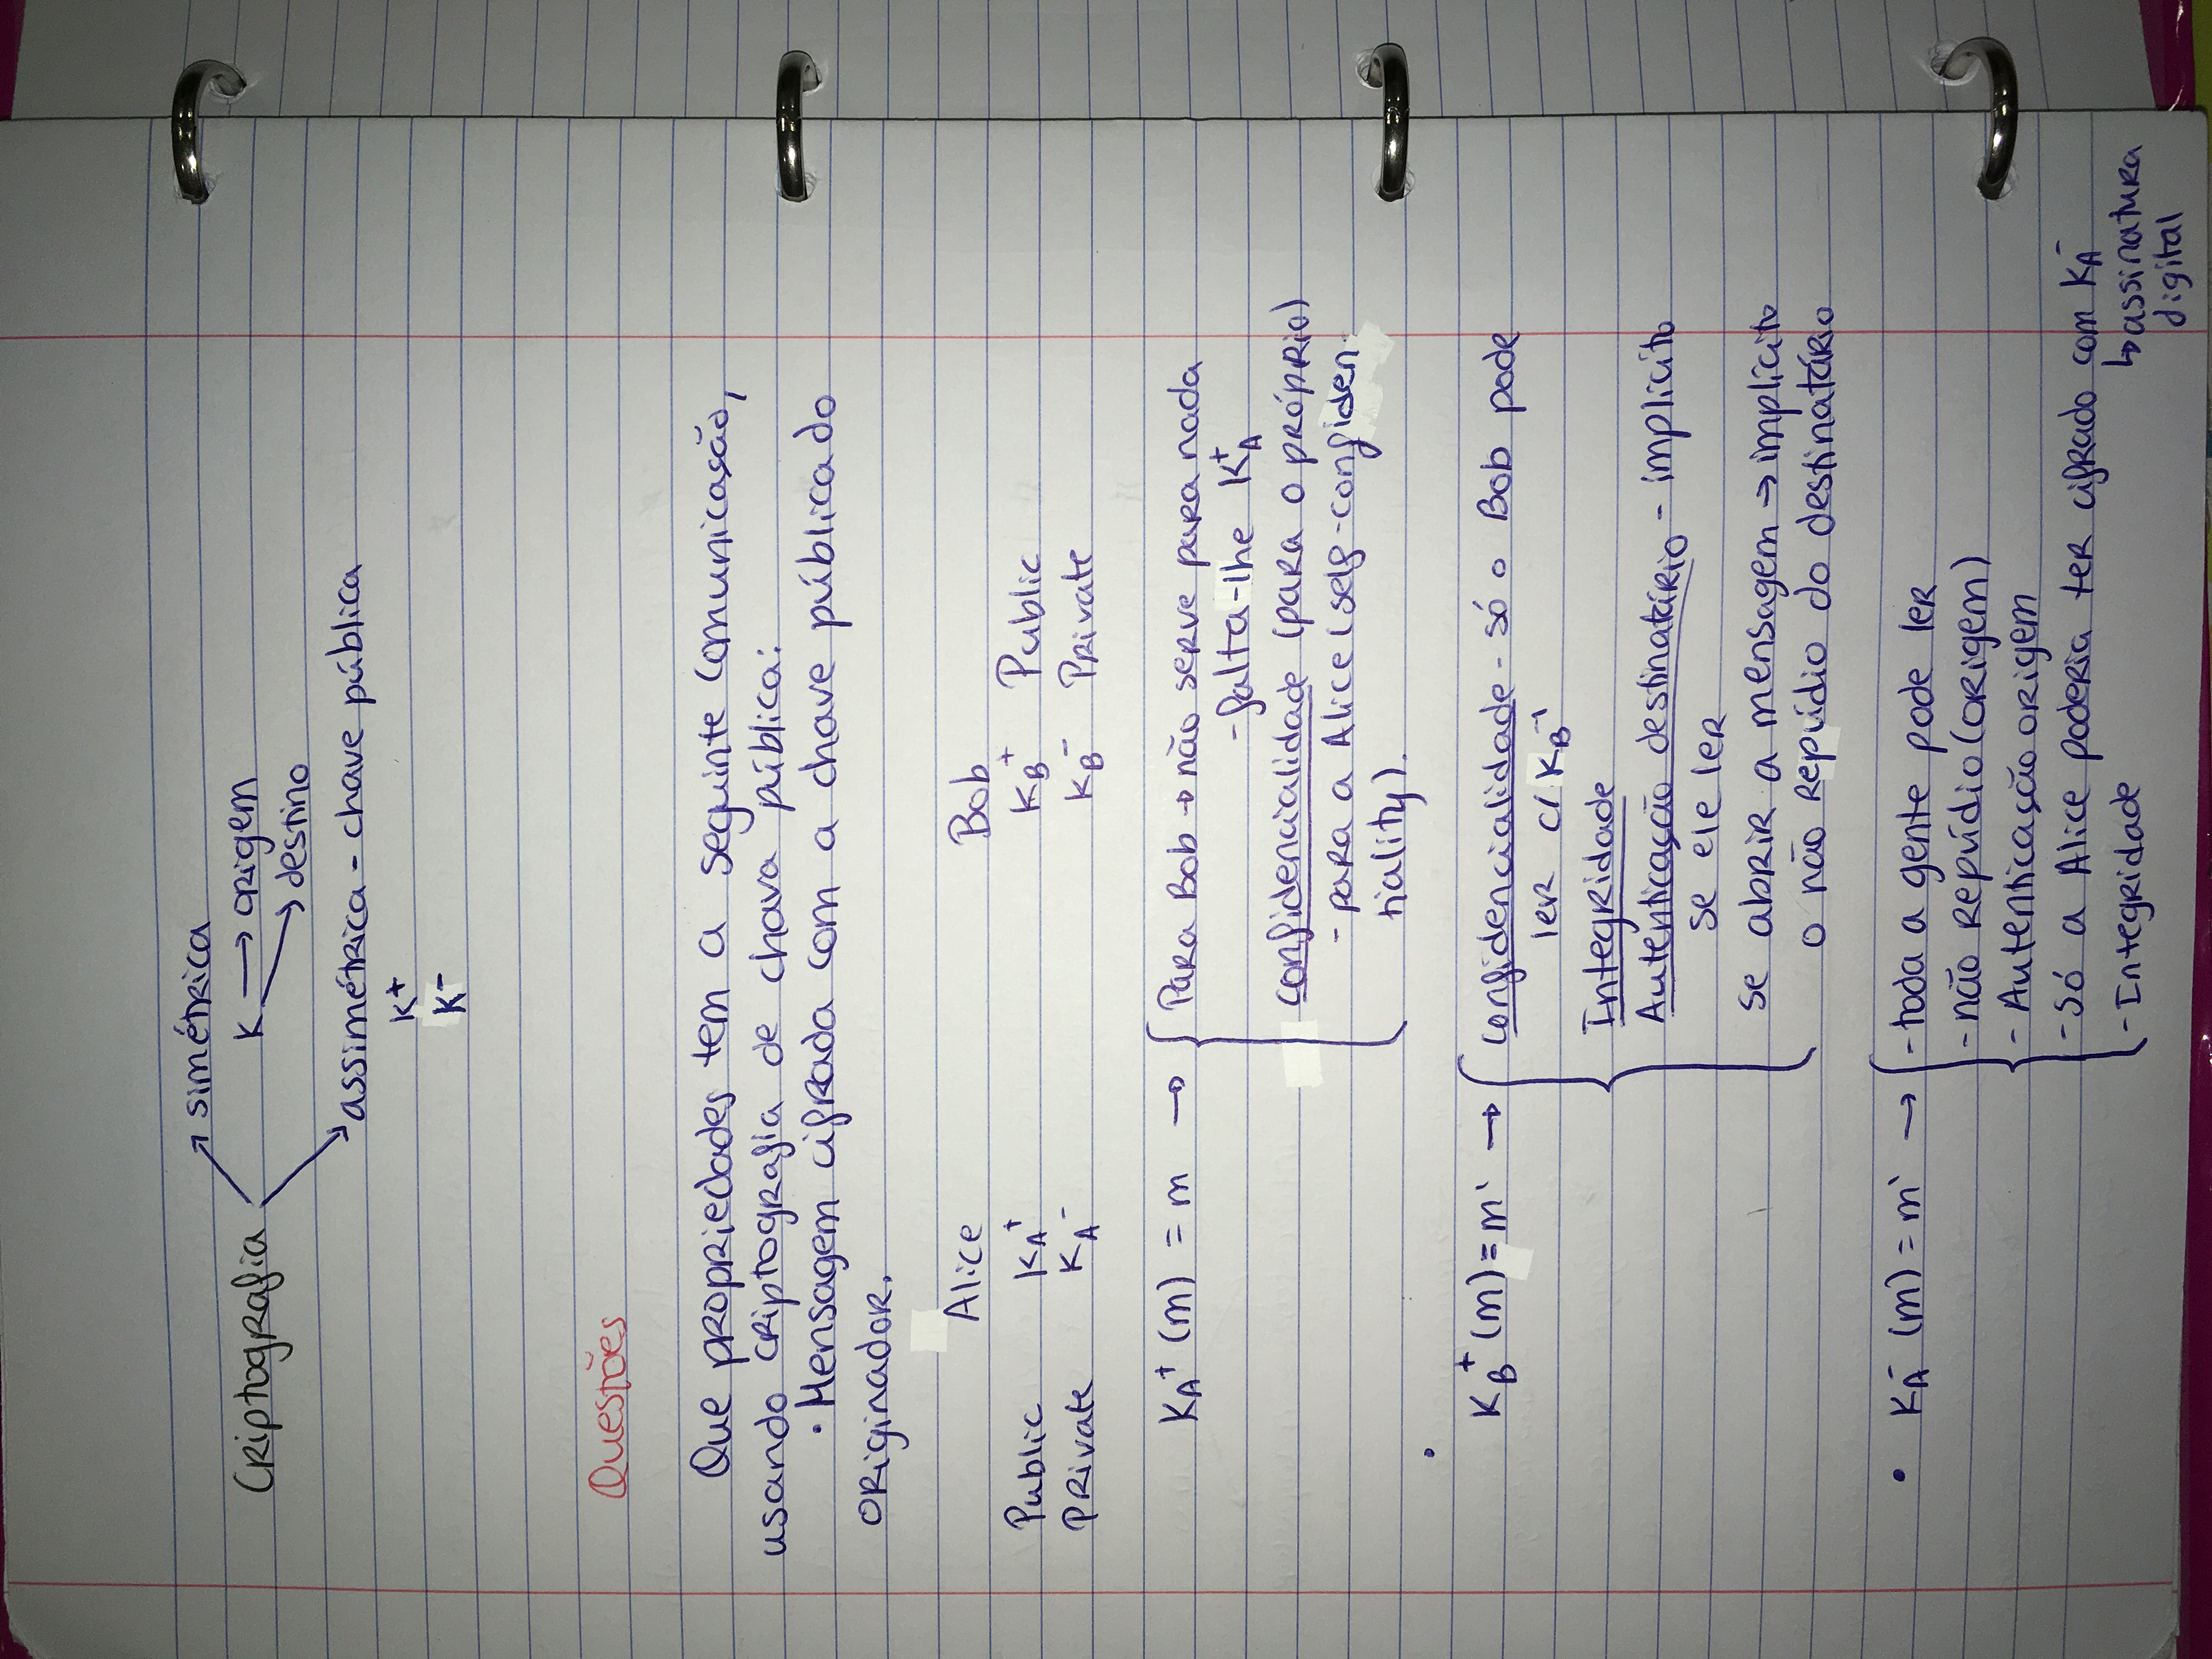 simétrica
Criptografia K → origem
→ destino
assimétrica - chave pública
K+
K-
Questões
Que propriedades tem a seguinte comunicasão,
usando criptografia de chava pública:
• Mensagem cifrada com a chave pública do
originador.
Alice Bob
Public KA+ KB+ Public
Private KA- KB- Private
KA+ (m) = m → Para Bob → não serve para nada
- falta-lhe KA+
confidencialidade (para o próprio)
- para a Alice (self-confiden-
tiality).
•
KB+ (m) = m' → confidencialidade - só o Bob pode
ler c/ KB-1
Integridade
Autenticação destinatário - implícito
se ele ler
se abrir a mensagem → implícito
o não repúdio do destinatário
• KA- (m) = m' → - toda a gente pode ler
- não repúdio (origem)
- Autenticação origem
- só a Alice poderia ter cifrado com KA-
- Integridade ↳ assinatura
digital